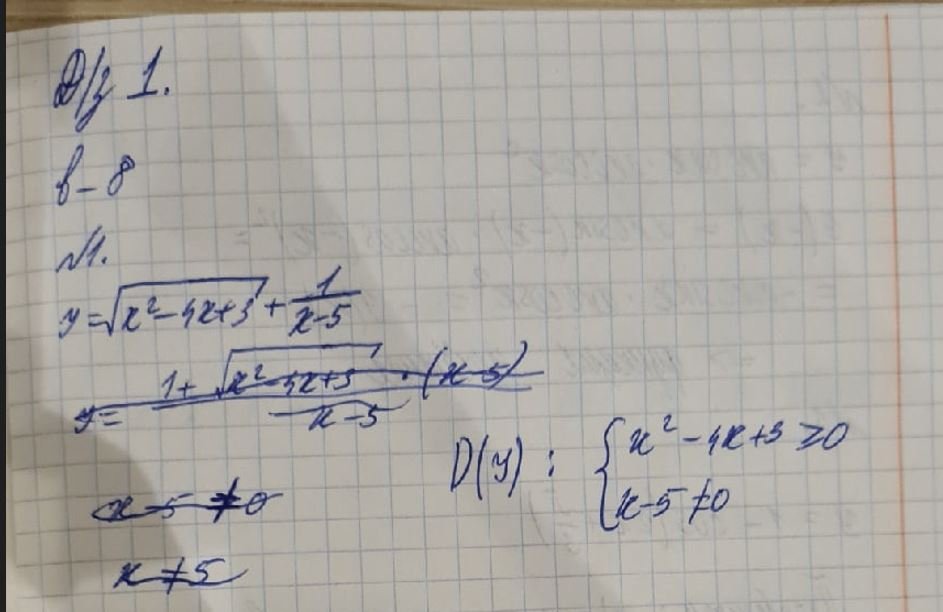 Д/з 1.
в-8
№1.
y = √(x² - 4x + 3) + 1/(x-5)
y = (1 + √(x² - 4x + 3) · (x-5))/(x-5)
D(y) : { x² - 4x + 3 ≥ 0
x - 5 ≠ 0
x - 5 ≠ 0
x ≠ 5